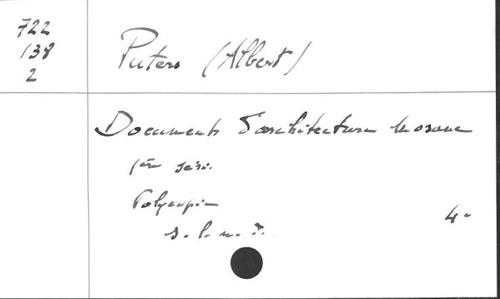 722
138
2
Puters (Albert)
Documents d'architecture mosane
1ère série
Polycopie
4°
s. l. n. d.